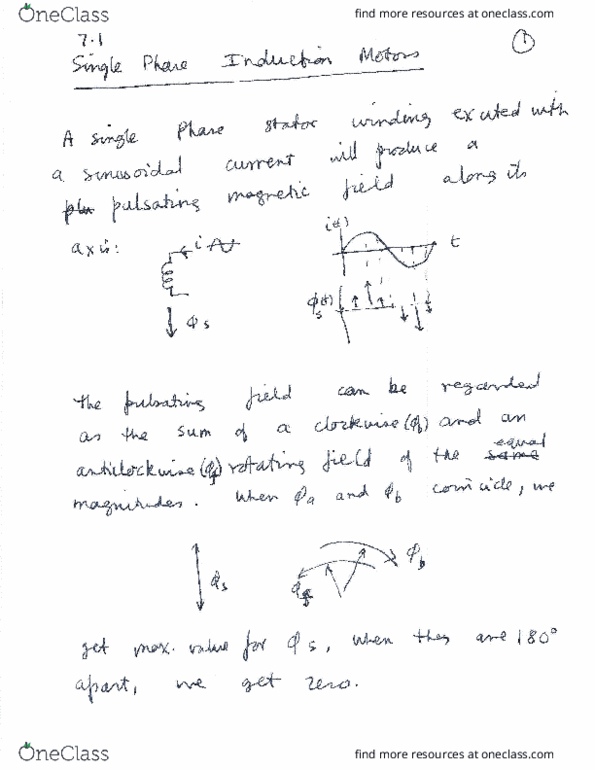 OneClass
find more resources at oneclass.com
7.1
①
Single Phase Induction Motors
A single phase stator winding excited with
a sinusoidal current will produce a
pulsating magnetic field along its
axis:
i
i(t)
t
ϕs
ϕs(t)
The pulsating field can be regarded
as the sum of a clockwise and an
equal
anticlockwise rotating field of the same
magnitudes. When ϕa and ϕb coincide, we
ϕs
ϕb
get max. value for ϕs, when they are 180°
apart, we get zero.
OneClass
find more resources at oneclass.com